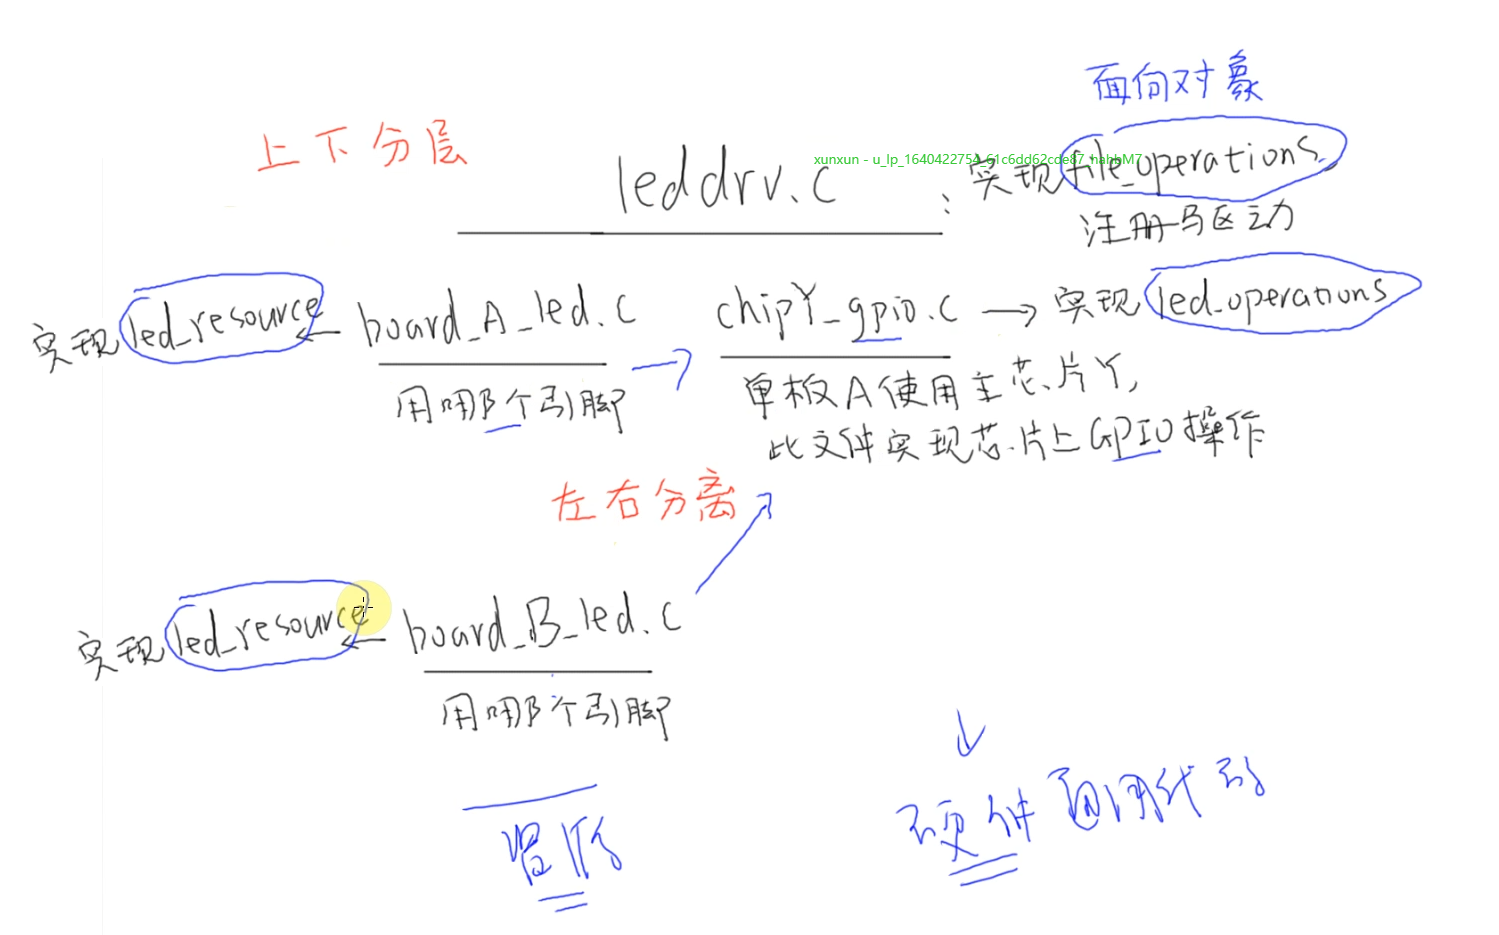 面向对象
上下分层
xunxun - u_lp_1640422754_61c6dd62cde87_hahbM7
leddrv.c : 实现file_operations
注册驱动
实现led_resource ← board_A_led.c
chipY_gpio.c → 实现led_operations
用哪个引脚
单板A使用主芯片Y,
此文件实现芯片上GPIO操作
左右分离
实现led_resource ← board_B_led.c
用哪个引脚
硬件通用代码
资源